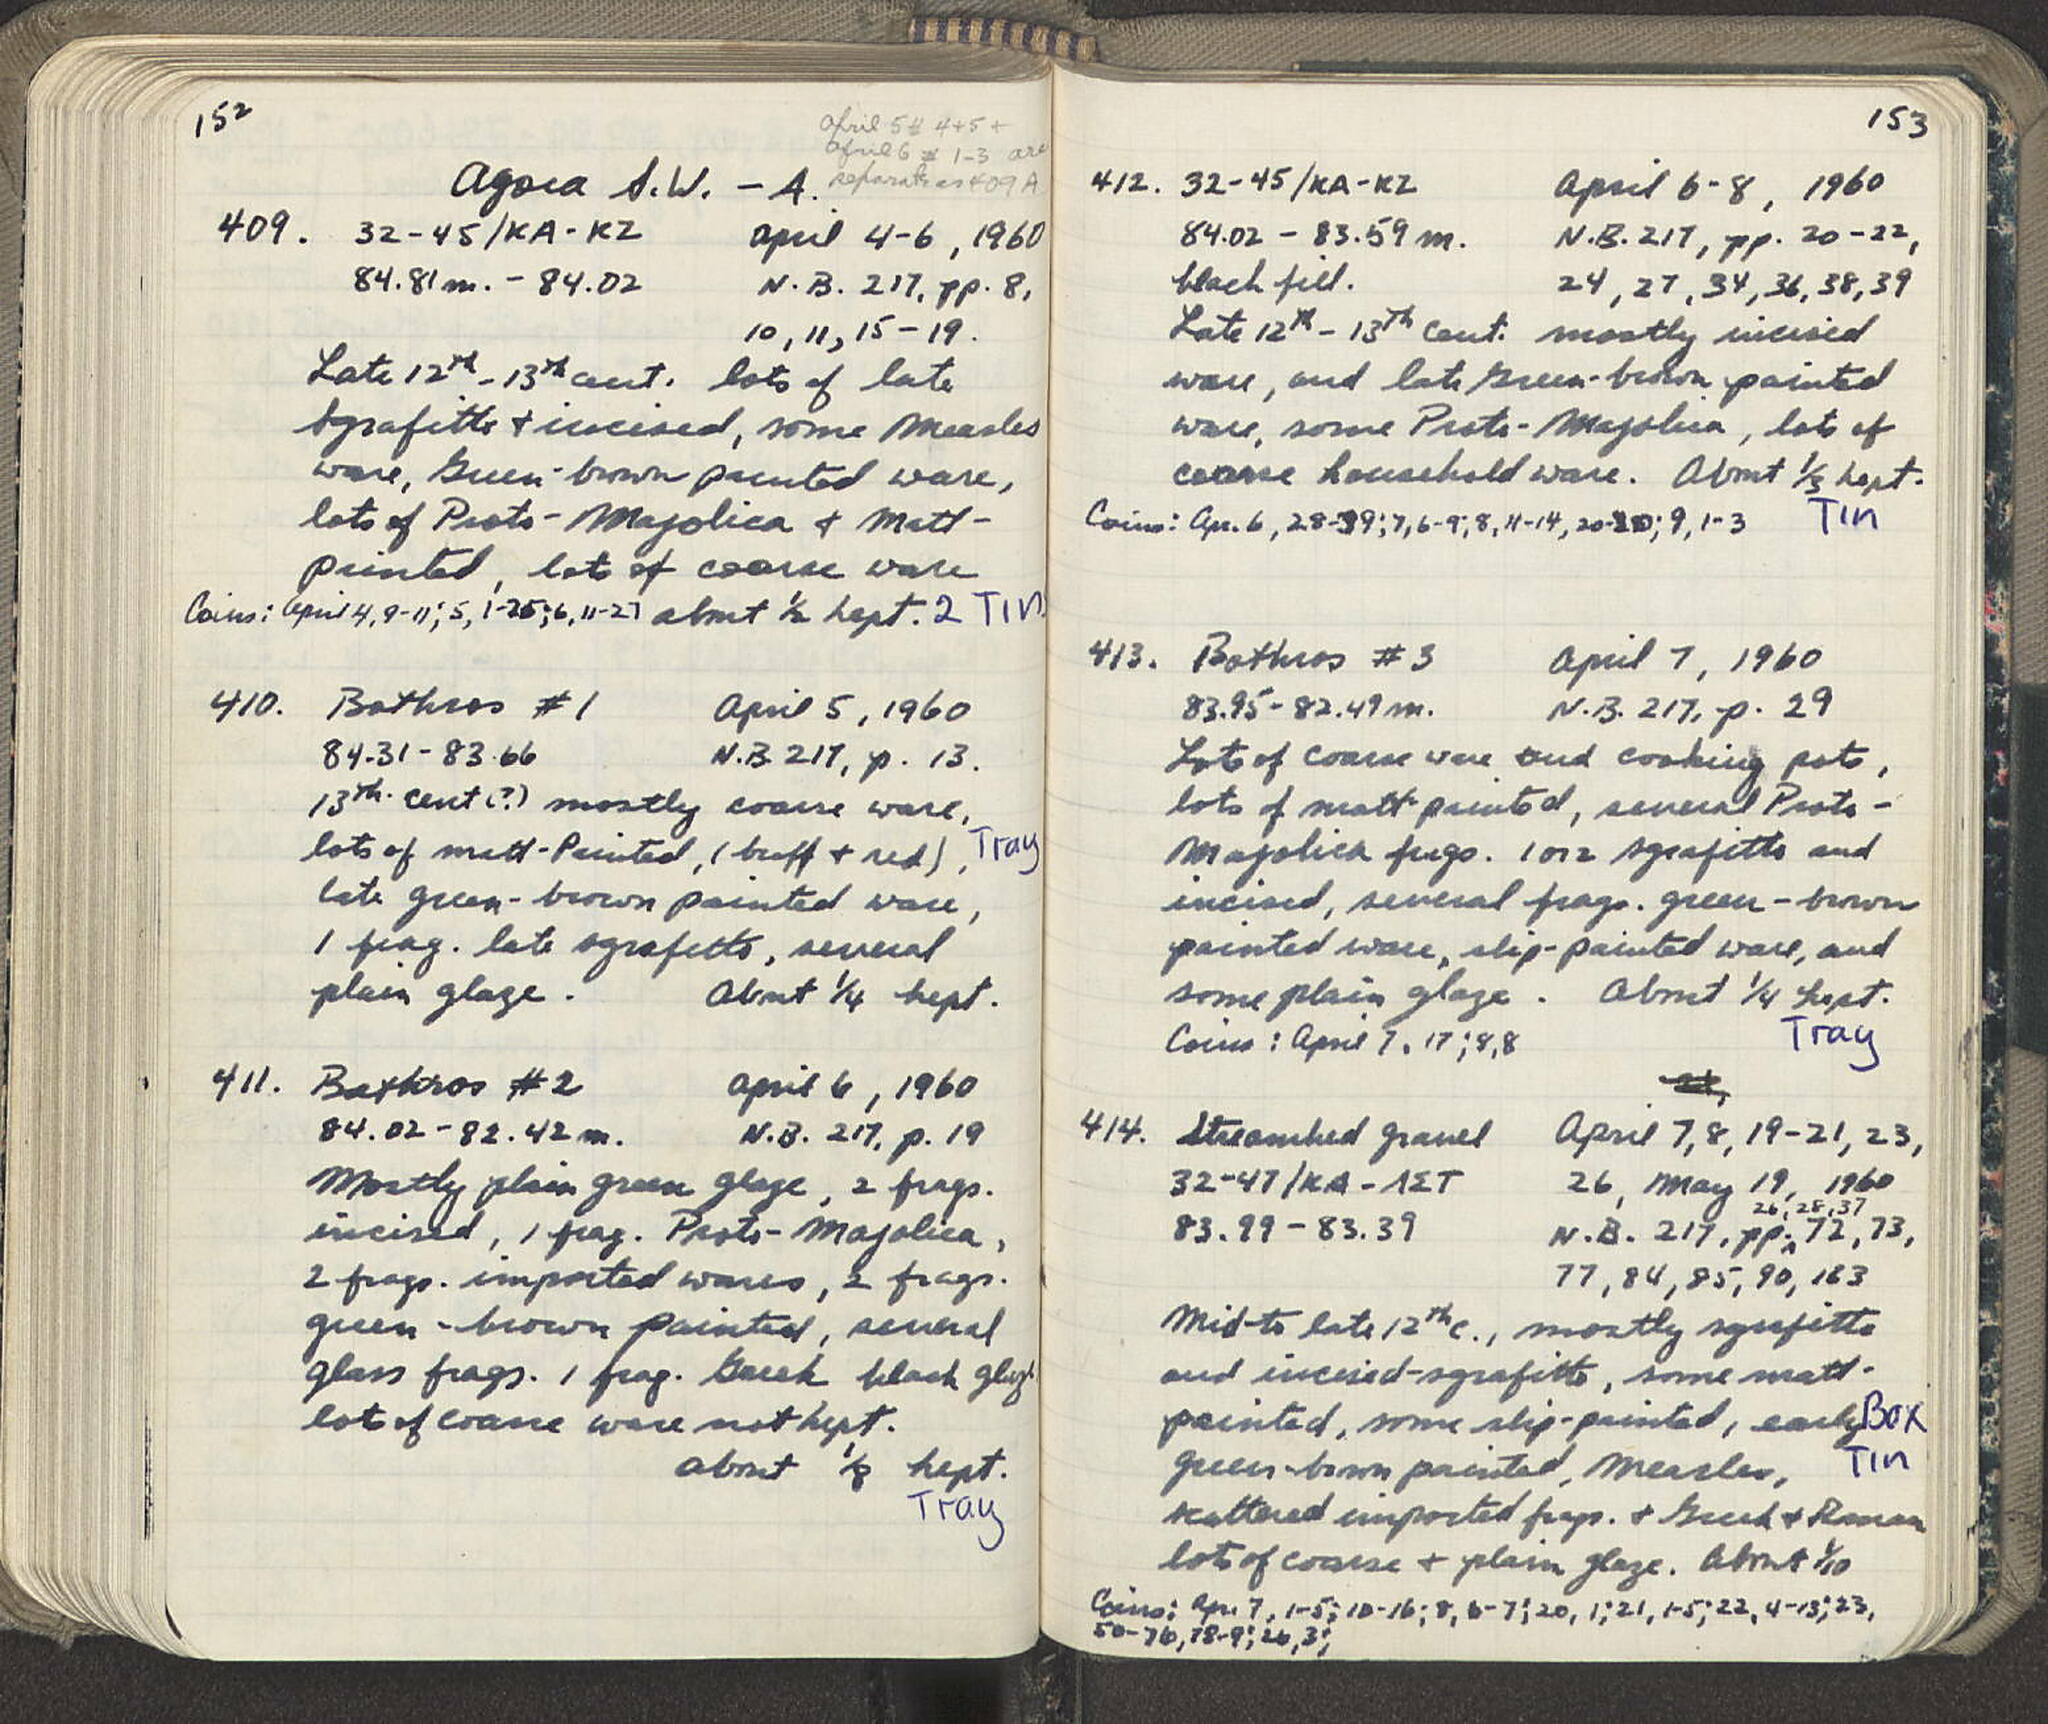 152
April 5 # 4+5 +
April 6 # 1-3 are
separate as 409 A
Agora S.W. - A.
409. 32-45/KA-KZ April 4-6, 1960
84.81 m. - 84.02 N.B. 217, pp. 8,
10, 11, 15-19.
Late 12th - 13th cent. lots of late
sgrafitto + incised, some Measles
ware, Green-brown painted ware,
lots of Proto-Majolica + Matt-
painted, lots of coarse ware
Coins: April 4, 9-11; 5, 1-25; 6, 11-27 about 1/2 kept. 2 Tin
410. Bothros #1 April 5, 1960
84.31 - 83.66 N.B. 217, p. 13.
13th cent (?) mostly coarse ware,
lots of matt-Painted, (buff + red), Tray
late green-brown painted ware,
1 frag. late sgrafitto, several
plain glaze. About 1/4 kept.
411. Bothros #2 April 6, 1960
84.02 - 82.42 m. N.B. 217, p. 19
Mostly plain green glaze, 2 frags.
incised, 1 frag. Proto-Majolica,
2 frags. imported wares, 2 frags.
green-brown painted, several
glass frags. 1 frag. Greek black glaz.
lots of coarse ware not kept.
about 1/8 kept.
Tray
153
412. 32-45/KA-KZ April 6-8, 1960
84.02 - 83.59 m. N.B. 217, pp. 20-22,
black fill. 24, 27, 34, 36, 38, 39
Late 12th - 13th cent. mostly incised
ware, and late Green-brown painted
ware, some Proto-Majolica, lots of
coarse household ware. About 1/3 kept.
Coins: Apr. 6, 28-39; 7, 6-9; 8, 11-14, 20-30; 9, 1-3 Tin
413. Bothros #3 April 7, 1960
83.95 - 82.49 m. N.B. 217, p. 29
Lots of coarse ware and cooking pots,
lots of matt-painted, several Proto-
Majolica frags. 1 or 2 sgrafitto and
incised, several frags. green-brown
painted ware, slip-painted ware, and
some plain glaze. About 1/4 kept.
Coins: April 7, 17; 8, 8 Tray
414. Streambed gravel April 7, 8, 19-21, 23,
32-47/KA-ΛΣΤ 26, May 19, 1960
26, 28, 37
83.99 - 83.39 N.B. 217, pp. 72, 73,
77, 84, 85, 90, 163
Mid- to late 12th c., mostly sgrafitto
and incised-sgrafitto, some matt-
painted, some slip-painted, early Box
green-brown painted, Measles, Tin
scattered imported frags. + Greek + Roman
lots of coarse + plain glaze. About 1/10
Coins: Apr. 7, 1-5; 10-16; 8, 6-7; 20, 1; 21, 1-5; 22, 4-13; 23,
50-76, 78-9; 26, 3;